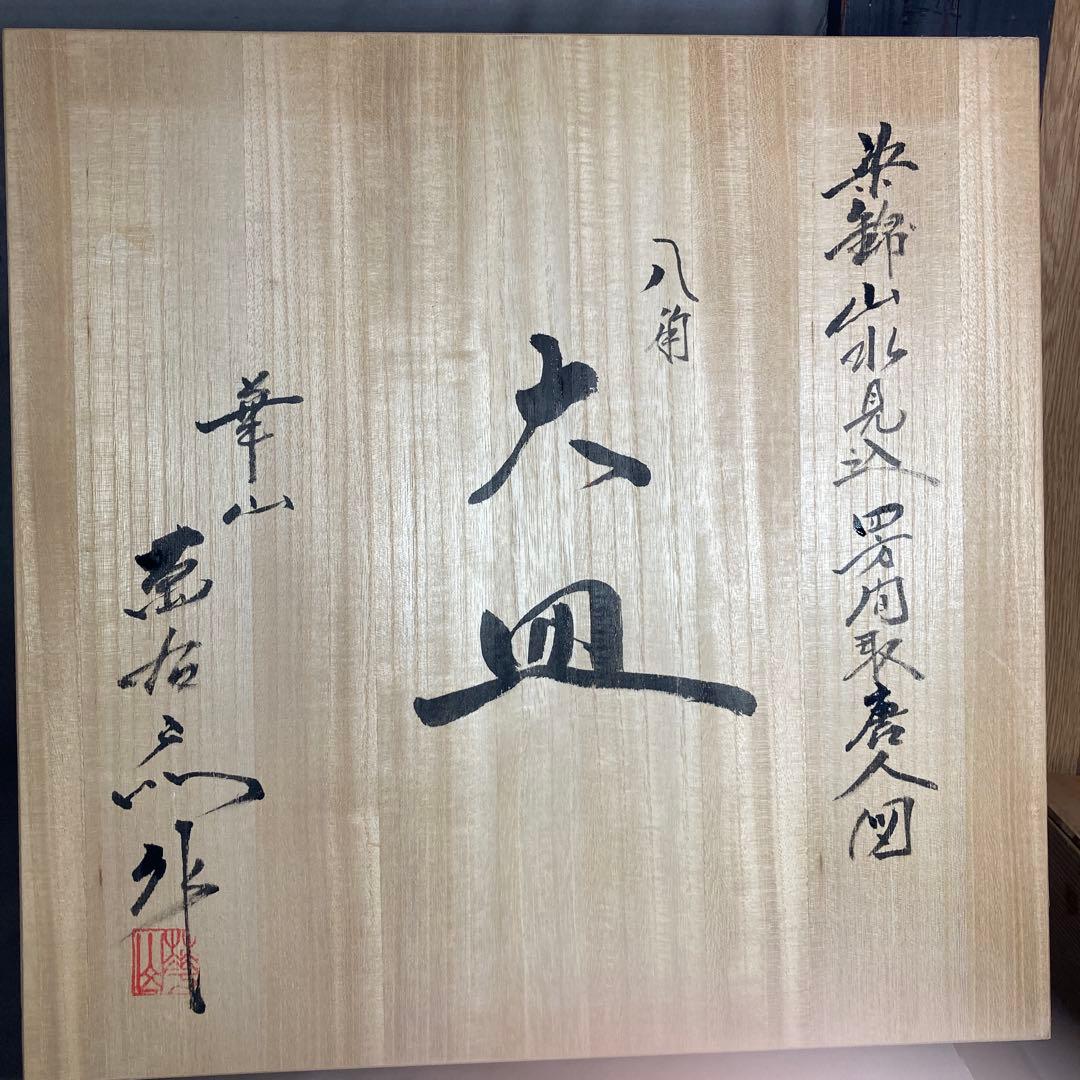 染錦山水見込四方間取唐人図
八角
大皿
華山
右ヱ門作